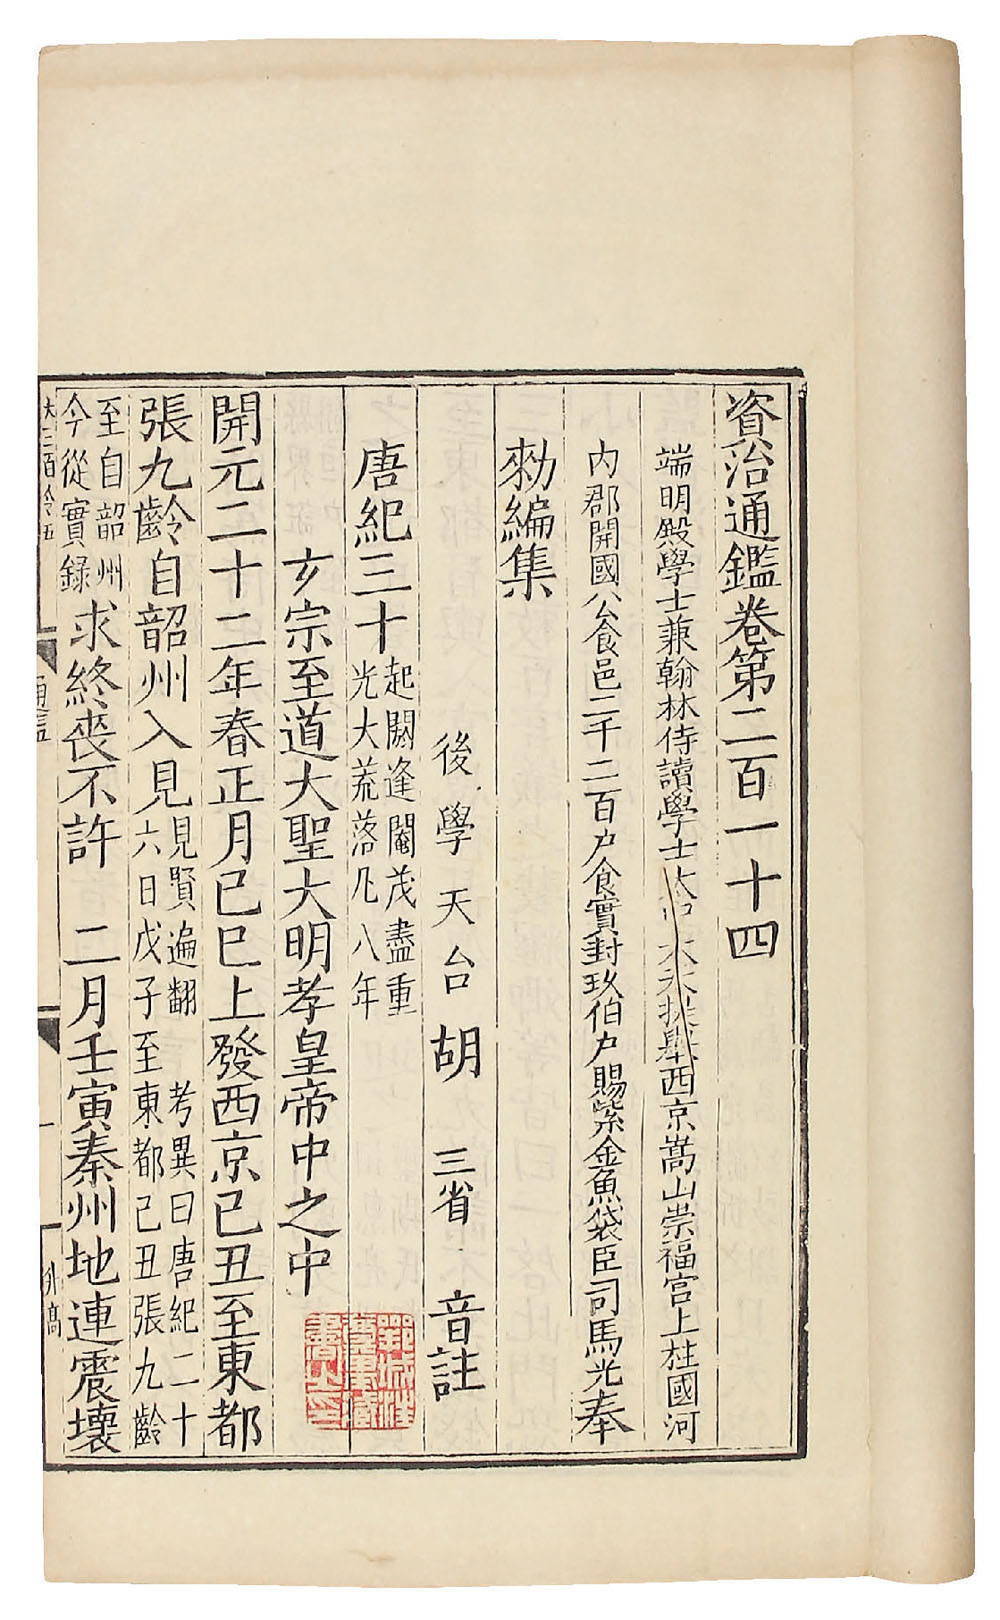 資治通鑑卷第二百一十四
端明殿學士兼翰林侍讀學士太中大夫提舉西京嵩山崇福宮上柱國河
內郡開國公食邑二千二百户食實封玖伯户賜紫金魚袋臣司馬光奉
勑編集
後學天台胡三省音註
唐紀三十
起閼逢閹茂盡重
光大荒落凡八年
玄宗至道大聖大明孝皇帝中之中
開元二十二年春正月己巳上發西京己丑至東都
張九齡自韶州入見
見賢遍翻 考異曰唐紀二十
六日戊子至東都己丑張九齡
至自韶州
今從實録
求終喪不許 二月壬寅秦州地連震壞